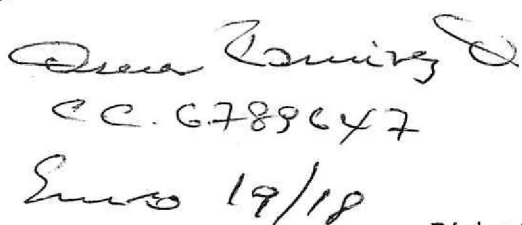 Oscar Ramirez O
CC. 6789647
Enero 19/18